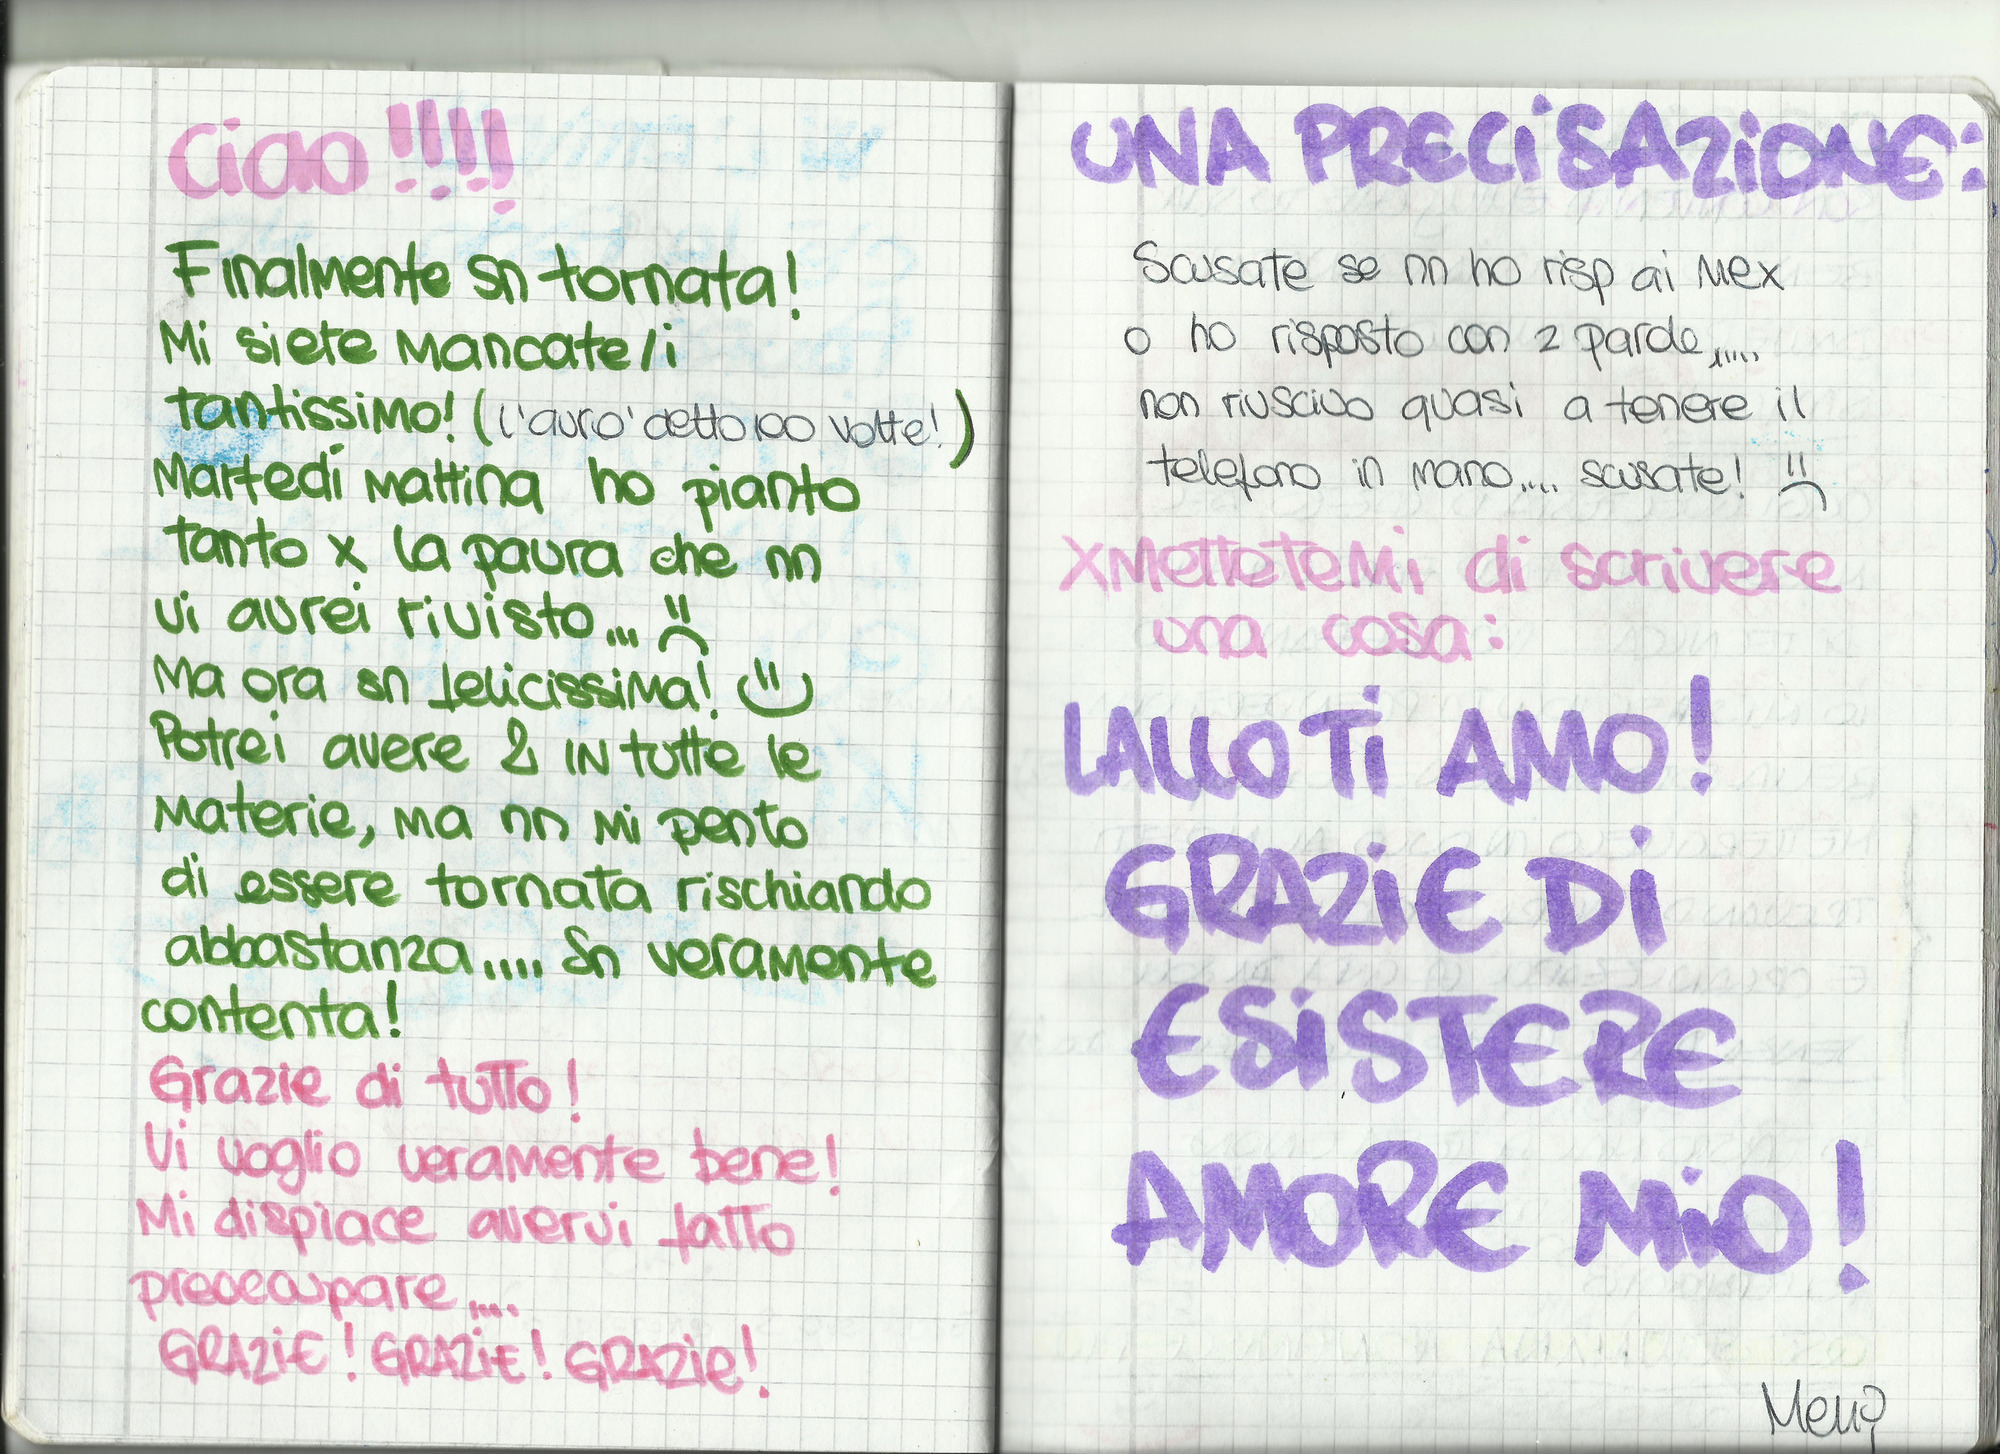 Ciao!!!!
Finalmente sn tornata!
Mi siete mancate/i
tantissimo! (l'avrò detto 100 volte!)
Martedí mattina ho pianto
tanto x la paura che nn
vi avrei rivisto...
Ma ora sn felicissima!
Potrei avere 2 in tutte le
materie, ma nn mi pento
di essere tornata rischiando
abbastanza.... Sn veramente
contenta!
Grazie di tutto!
Vi voglio veramente bene!
Mi dispiace avervi fatto
preoccupare....
GRAZIE! GRAZIE! GRAZIE!
UNA PRECISAZIONE:
Scusate se nn ho risp ai mex
o ho risposto con 2 parole,....
non riuscivo quasi a tenere il
telefono in mano.... scusate!
xmettetemi di scrivere
una cosa:
LALLO TI AMO!
GRAZIE DI
ESISTERE
AMORE MIO!